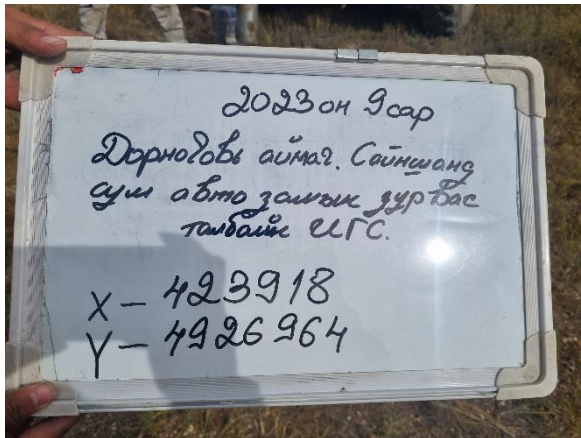 2023 он 9 сар
Дорноговь аймаг. Сайншанд
сум авто замын зурвас
талбайн ИГС.
X – 423918
Y – 4926964